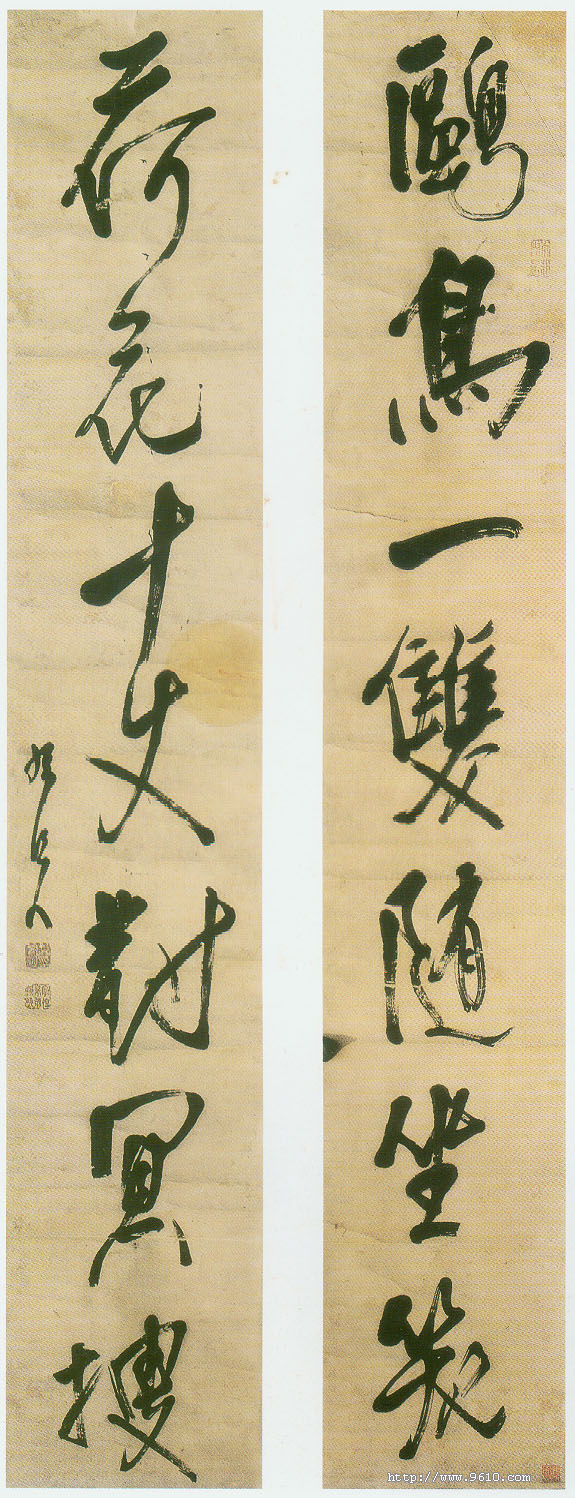 鷗鳥一雙隨坐笑
荷花十丈對冥搜
http://www.9610.com